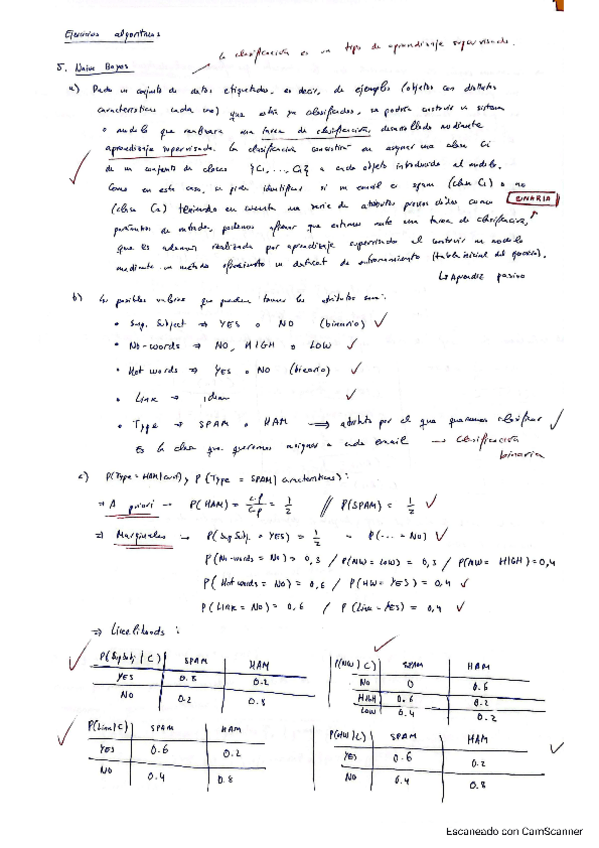 Ejercicios algoritmos
↳ clasificación es un tipo de aprendizaje supervisado.
5. Naive Bayes
a) Dado un conjunto de datos etiquetados, es decir, de ejemplos (objetos con distintas
características cada uno) que están ya clasificados, se podría construir un sistema
o modelo que realizara una tarea de clasificación, desarrollado mediante
aprendizaje supervisado. La clasificación consistiría en asignar una clase Ci
de un conjunto de clases {C1, ..., Ci} a cada objeto introducido al modelo.
Como en este caso, se piden identificar si un email es spam (clase C1) o no
(clase C2) teniendo en cuenta una serie de atributos proporcionados como BINARIA
parámetros de entrada, podemos afirmar que estamos ante una tarea de clasificación,
que es además realizada por aprendizaje supervisado al construir un modelo
mediante un método ofreciendo un dataset de entrenamiento (tabla inicial del ejercicio).
↳ Aprendiz pasivo
b) Los posibles valores que pueden tomar los atributos son:
• Sup. Subject ⇒ YES o NO (binario) ✓
• No-words ⇒ NO, HIGH o LOW ✓
• Hot words ⇒ YES o NO (binario) ✓
• Link → idem ✓
• Type → SPAM o HAM ⟹ atributo por el que queremos clasificar ✓
Es la clase que queremos asignar a cada email → clasificación
binaria
c) P(Type = HAM | caract) y P(Type = SPAM | características):
⇒ A priori → P(HAM) = c.f/c.p = 1/2 // P(SPAM) = 1/2 ✓
⇒ Marginales → P(SupSubj. = YES) = 1/2 = P(... = NO) ✓
P(No-words = No) = 0,3 / P(NW = LOW) = 0,3 / P(NW = HIGH) = 0,4
P(Hot words = NO) = 0,6 / P(HW = YES) = 0,4 ✓
P(LINK = NO) = 0,6 / P(Link = YES) = 0,4 ✓
⇒ Likelihoods:
P(SupSubj | C) SPAM HAM
YES 0.8 0.2
NO 0.2 0.8
P(NW | C) SPAM HAM
NO 0 0.6
HIGH 0.6 0.2
LOW 0.4 0.2
P(Link | C) SPAM HAM
YES 0.6 0.2
NO 0.4 0.8
P(HW | C) SPAM HAM
YES 0.6 0.2
NO 0.4 0.8
Escaneado con CamScanner